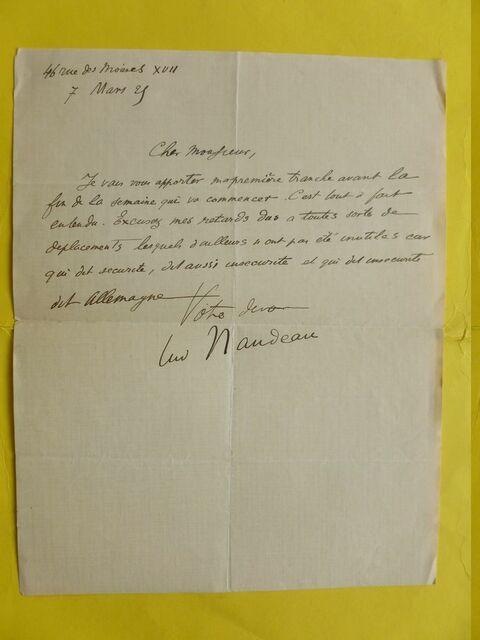 46 rue des XVII
7 Mars 25
Cher Monsieur,
Je vais vous apporter ma première tranche avant la
fin de la semaine qui va commencer. C'est tout à fait
entendu. Excusez mes retards dus a toutes sorte de
deplacements lesquels d'ailleurs n'ont pas été inutiles car
qui dit securite, dit aussi insecurite et qui dit insecurite
dit Allemagne
Votre
Naudeau